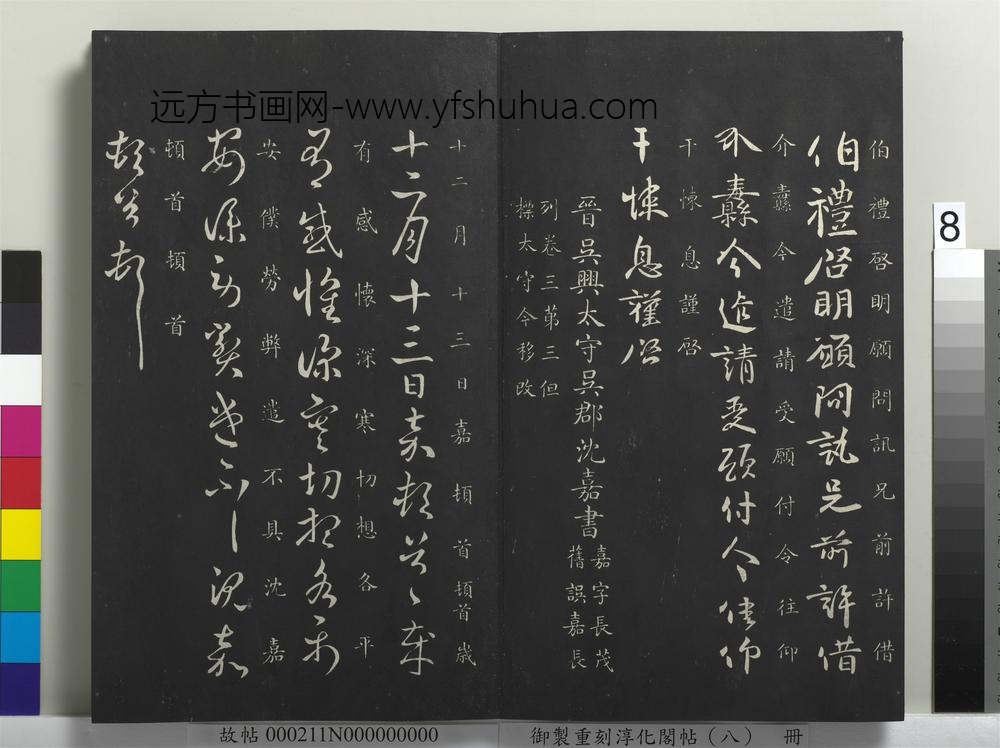 远方书画网-www.yfshuhua.com
伯禮啓明願問訊兄前許借
伯禮啓明願問訊兄前許借
介纛今遣請受願付令往仰
介纛今遣請受願付令往仰
干悚息謹啓
干悚息謹啓
晉吳興太守吳郡沈嘉書
嘉字長茂
舊誤嘉長
列卷三苐三但
標太守今移改
十二月十三日嘉頓首頓首歲
十二月十三日嘉頓首頓首歲
有感懷深寒切想各平
有感懷深寒切想各平
安僕勞弊遣不具沈嘉
安僕勞弊遣不具沈嘉
頓首頓首
頓首頓首
8
故帖 000211N000000000
御製重刻淳化閣帖（八） 冊